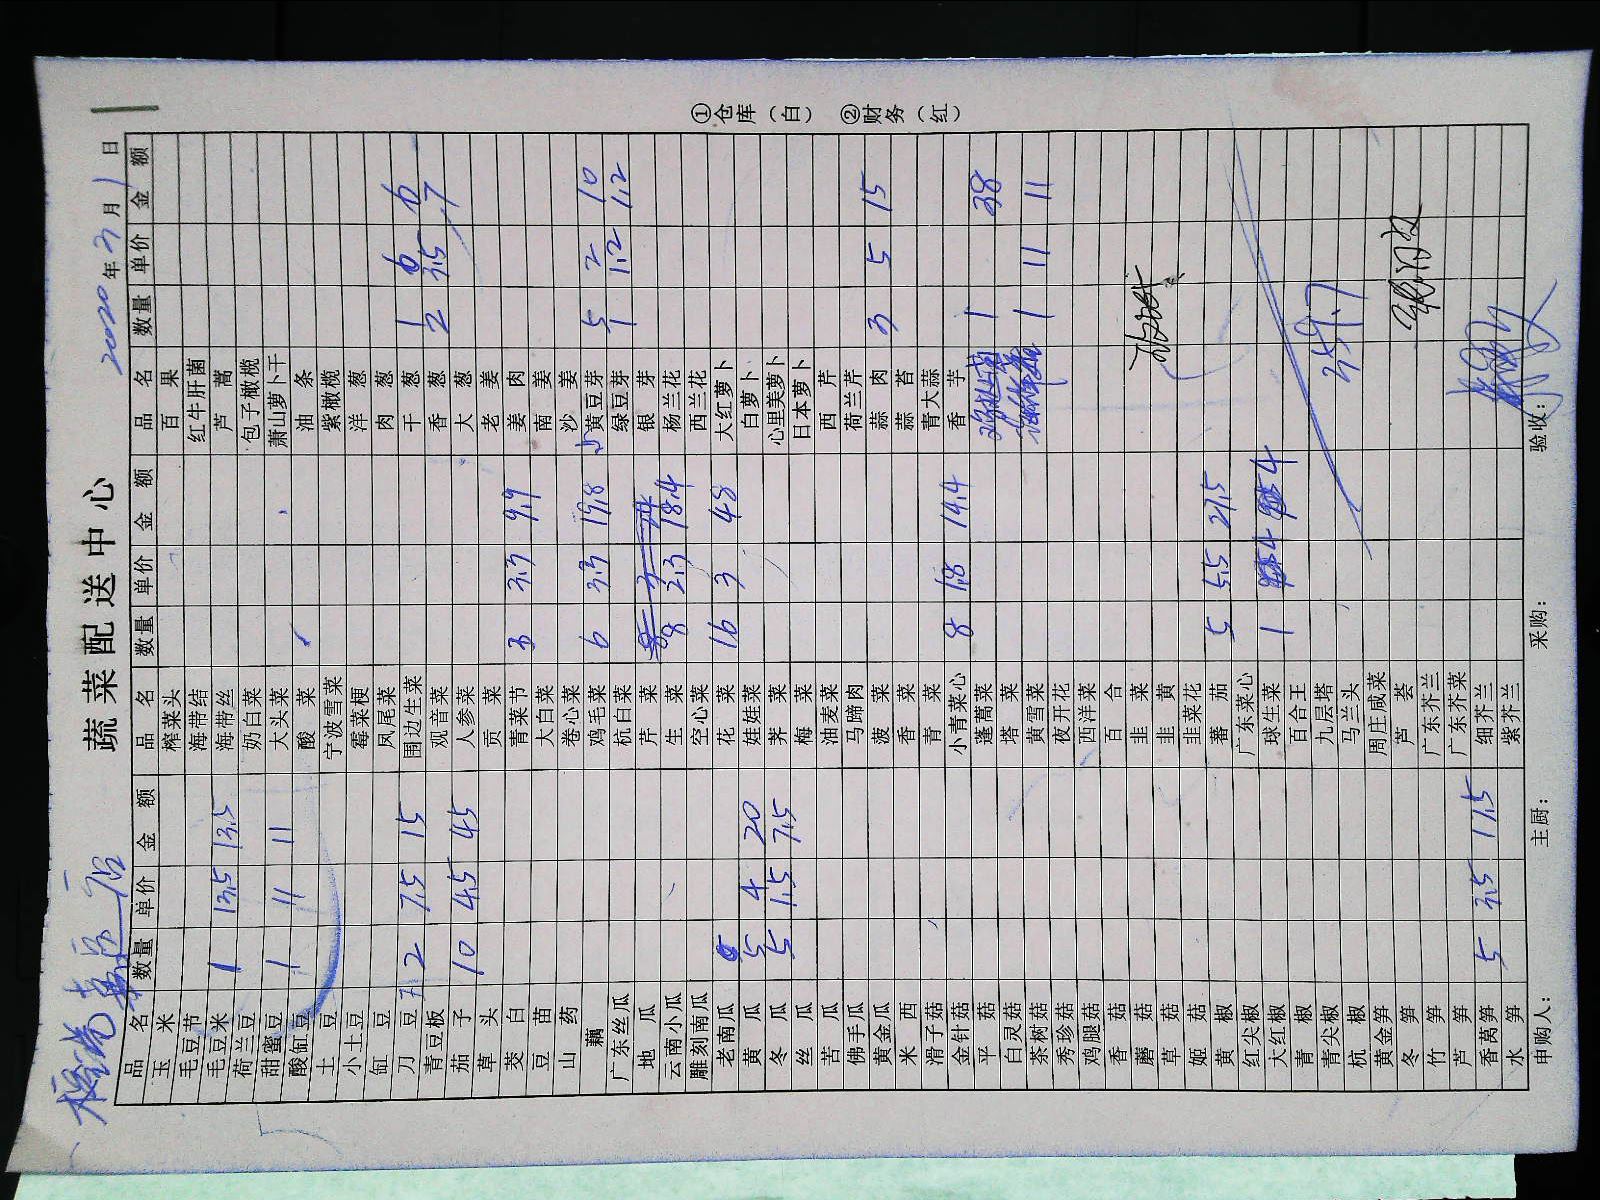 蔬菜配送中心
2020年3月1日
品名 数量 单价 金额 品名 数量 单价 金额 品名 数量 单价 金额
玉米 榨菜头 百果
毛豆节 海带结 红牛肝菌
毛豆米 1 13.5 13.5 海带丝 芦蒿
荷兰豆 奶白菜 包子橄榄
甜蜜豆 1 11 11 大头菜 萧山萝卜干
酸缸豆 酸菜 油条
土豆 宁波雪菜 紫橄榄
小土豆 霉菜梗 洋葱
缸豆 凤尾菜 肉葱
刀豆 2 7.5 15 围边生菜 干葱 1 6 6
青豆板 观音菜 香葱 2 3.5 7
茄子 10 4.5 45 人参菜 大葱
草头 贡菜 老姜
茭白 青菜节 3 3.3 9.9 姜肉
豆苗 大白菜 南姜
山药 卷心菜 沙姜
藕 鸡毛菜 6 3.3 19.8 黄豆芽 5 2 10
广东丝瓜 杭白菜 绿豆芽 1 1.2 1.2
地瓜 芹菜 银芽
云南小瓜 生菜 8 2.3 18.4 杨兰花
雕刻南瓜 空心菜 西兰花
老南瓜 花菜 16 3 48 大红萝卜
黄瓜 5 4 20 娃娃菜 白萝卜
冬瓜 5 1.5 7.5 荠菜 心里美萝卜
丝瓜 梅菜 日本萝卜
苦瓜 油麦菜 西芹
佛手瓜 马蹄肉 荷兰芹
黄金瓜 菠菜 蒜肉 3 5 15
米西 香菜 蒜苔
滑子菇 青菜 青大蒜
金针菇 小青菜心 8 1.8 14.4 香芋
平菇 蓬蒿菜 1 38
白灵菇 塔菜
茶树菇 黄雪菜 1 11 11
秀珍菇 夜开花
鸡腿菇 西洋菜
香菇 百合
蘑菇 韭菜
草菇 韭黄
姬菇 韭菜花
黄椒 蕃茄 5 5.5 27.5
红尖椒 广东菜心
大红椒 球生菜 1 4 4
青椒 百合王
青尖椒 九层塔 359.7
杭椒 马兰头
黄金笋 周庄咸菜
冬笋 芦荟
竹笋 广东芥兰
芦笋 广东芥菜
香莴笋 5 3.5 17.5 细芥兰
水笋 紫芥兰
申购人： 主厨： 采购： 验收：
①仓库（白） ②财务（红）